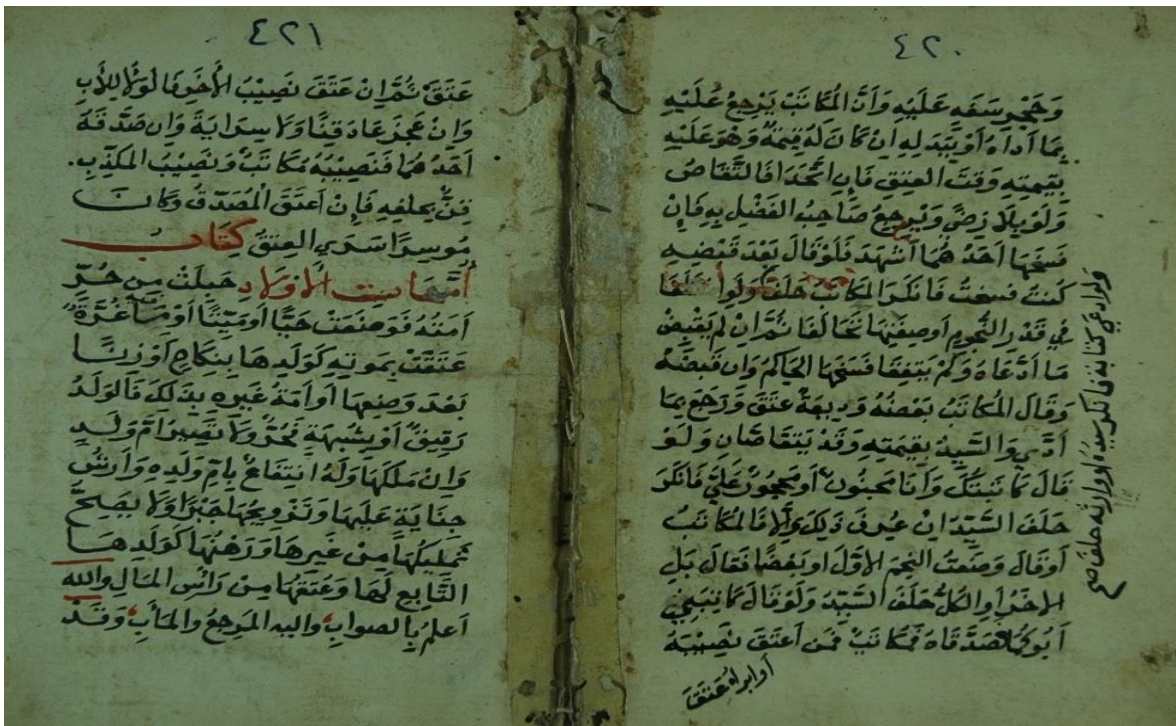 ٤٢٠
وَحَجْرِ سَفَهٍ عَلَيْهِ وَأَنَّ المُكَاتَبَ يَرْجِعُ عَلَيْهِ
بِمَا أَدَاهُ أَوْ بِبَدَلِهِ اِنْ كَانَ لَهُ قِيمَةٌ وَهُوَ عَلَيْهِ
بِقِيمَتِهِ وَقْتَ العِتْقِ فَإِنِ اتَّحَدَا فَالتَّقَاصُّ
وَلَوْ بِلَا رِضًى وَيَرْجِعُ صَاحِبُ الفَضْلِ بِهِ فَإِنْ
فَسَخَهَا اَحَدُهُمَا اَشْهَدَ فَلَوْ قَالَ بَعْدَ قَبْضِهِ
كُنْتُ فَسَخْتُ فَانْكَرَ المُكَاتَبُ حَلَفَ وَلَوِ اخْتَلَفَا
فِي قَدْرِ النُّجُومِ اَوْ صِفَتِهَا تَحَالَفَا ثُمَّ اِنْ لَمْ يَقْبِضْ
مَا اَدَّعَاهُ وَلَمْ يَتَّفِقَا فَسَخَهَا الحَاكِمُ وَاِنْ قَبَضَهُ
وَقَالَ المُكَاتَبُ بَعْضُهُ وَدِيعَةٌ عَتَقَ وَرَجَعَ بِمَا
اَدَّى وَالسَّيِّدُ بِقِيمَتِهِ وَقَدْ يَتَقَاصَّانِ وَلَوْ
قَالَ كَاتَبْتُكَ وَأَنَا مَجْنُونٌ أَوْ مَحْجُورٌ عَلَيَّ فَانْكَرَ
حَلَفَ السَّيِّدُ اِنْ عُرِفَ ذَلِكَ وَاِلَّا فَالمُكَاتَبُ
اَوْ قَالَ وَضَعْتُ النَّجْمَ الاَوَّلَ اَوْ بَعْضًا فَقَالَ بَلِ
الاٰخَرَ اَوِ الكُلَّ حَلَفَ السَّيِّدُ وَلَوْ قَالَ كَاتَبَنِي
اَبُوكُمَا فَصَدَّقَاهُ فَمُكَاتَبٌ فَمَنْ اَعْتَقَ نَصِيبَهُ
أو ابراه عَتَقَ
ولو ادعى كتابة فانكر سيده او وارثه حلف صح
٤٢١
عَتَقَ ثُمَّ اِنْ عَتَقَ نَصِيبُ الأَخَرِ فَالوَلَاُ لِلأَبِ
وَاِنْ عَجَزَ عَادَ قِنًّا وَلَا سِرَايَةَ وَاِنْ صَدَّقَهُ
اَحَدُهُمَا فَنَصِيبُهُ مُكَاتَبٌ وَنَصِيبُ المُكَذِّبِ
قِنٌّ بِحَلِفِهِ فَإِنْ اَعْتَقَ المُصَدِّقُ وَكَانَ
مُوسِرًا سَرَى العِتْقُ كِتَاب
اُمَّهَات الأَوْلَادِ حَبِلَتْ مِنْ حُرٍّ
اَمَتُهُ فَوَضَعَتْ حَيًّا اَوْ مَيِّتًا اَوْ مَا فِيهِ غُرَّةٌ
عَتَقَتْ بِمَوْتِهِ كَوَلَدِهَا بِنِكَاحٍ اَوْ زِنًا
بَعْدَ وَضْعِهَا اَوْ اَمَةُ غَيْرِهِ بِذَلِكَ فَالوَلَدُ
رَقِيقٌ اَوْ بِشُبْهَةٍ فَحُرٌّ وَلَا تَصِيرُ اُمَّ وَلَدٍ
وَاِنْ مَلَكَهَا وَلَهُ انْتِفَاعٌ بِاُمِّ وَلَدِهِ وَاَرْشُ
جِنَايَةٍ عَلَيْهَا وَتَزْوِيجُهَا جَبْرًا وَلَا يَصِحُّ
تَمْلِيكُهَا مِنْ غَيْرِهَا وَرَهْنُهَا كَوَلَدِهَا
التَّابِعِ لَهَا وَعِتْقُهَا مِنْ رَأْسِ المَالِ وَالله
اَعْلَمُ بِالصواب واليه المَرْجِعُ وَالمَابِ وَقَدْ